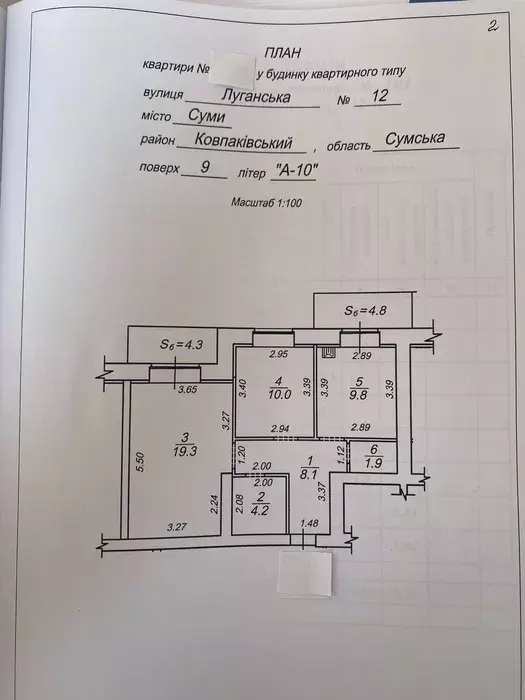 2
ПЛАН
квартири № у будинку квартирного типу
вулиця Луганська № 12
місто Суми
район Ковпаківський , область Сумська
поверх 9 літер "А-10"
Масштаб 1:100
S6=4.8
S6=4.3
2.95
2.89
3.65
3.40
4
10.0
3.39
3.39
5
9.8
3.39
3.27
5.50
3
19.3
2.94
2.89
1.20
2.00
1
8.1
1.12
6
1.9
2.00
2.24
2.08
2
4.2
3.37
3.27
1.48